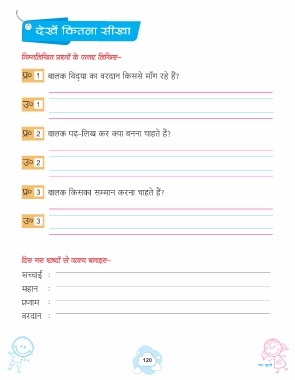 देखें कितना सीखा
निम्नलिखित प्रश्नों के उत्तर लिखिए-
प्र० 1 बालक विद्या का वरदान किससे माँग रहे हैं?
उ० 1
प्र० 2 बालक पढ़-लिख कर क्या बनना चाहते हैं?
उ० 2
प्र० 3 बालक किसका सम्मान करना चाहते हैं?
उ० 3
दिए गए शब्दों से वाक्य बनाइए-
सच्चाई :
महान :
प्रणाम :
वरदान :
120